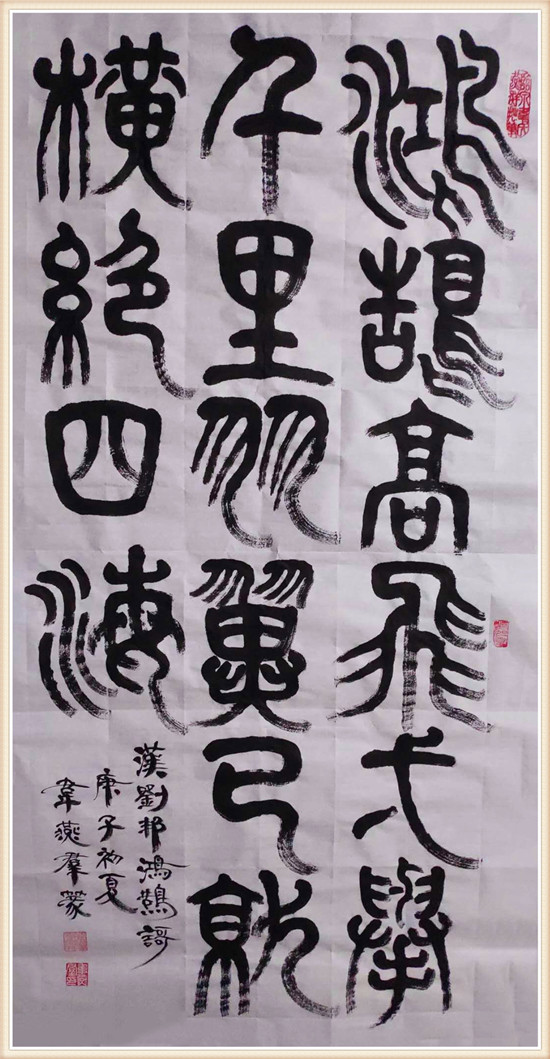 鴻鵠高飛弌舉
千里羽翼已就
橫絕四海
漢劉邦鴻鵠謌
庚子初夏
韋燕羣篆